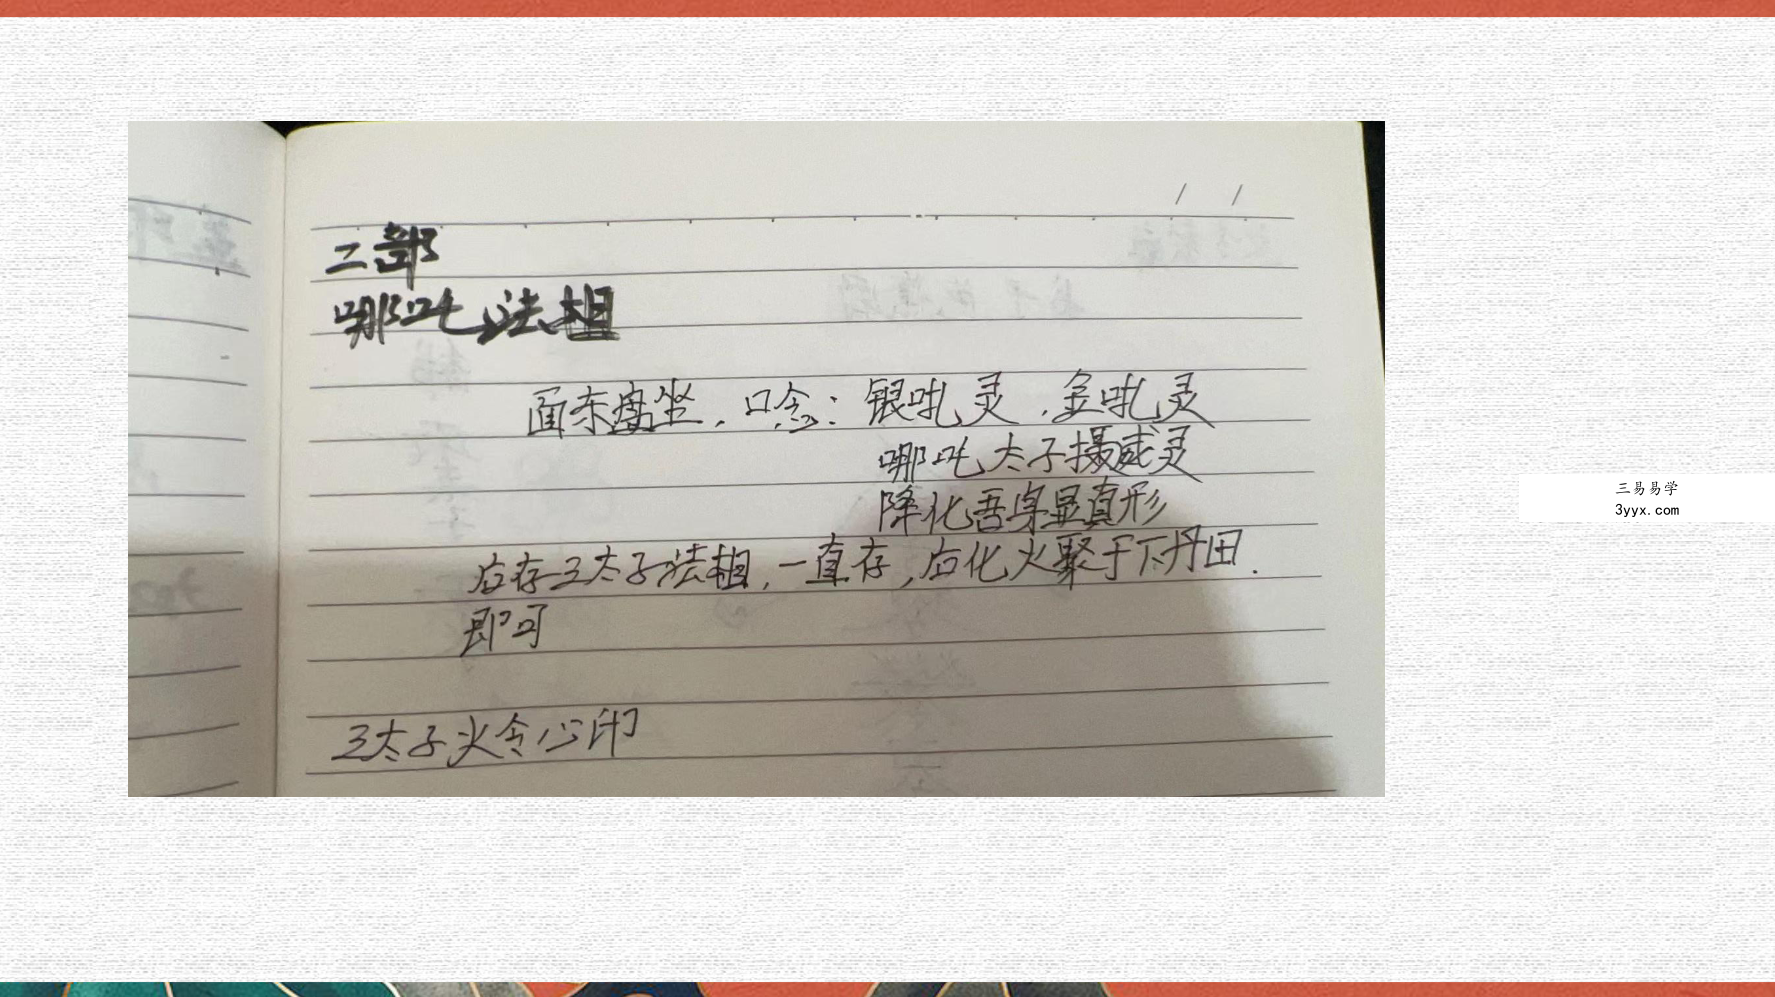 二部
哪吒法相
面东盘坐，口念：银吒灵，金吒灵
哪吒太子摄威灵
降化吾身显真形
后存三太子法相，一直存，后化火聚于下丹田.
即可
三太子火令心印
三易易学
3yyx.com